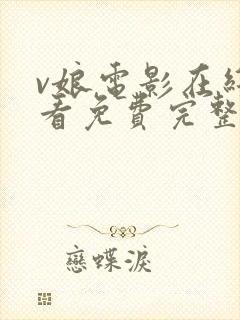 v娘电影在线
看免费完整
戀蝶淚